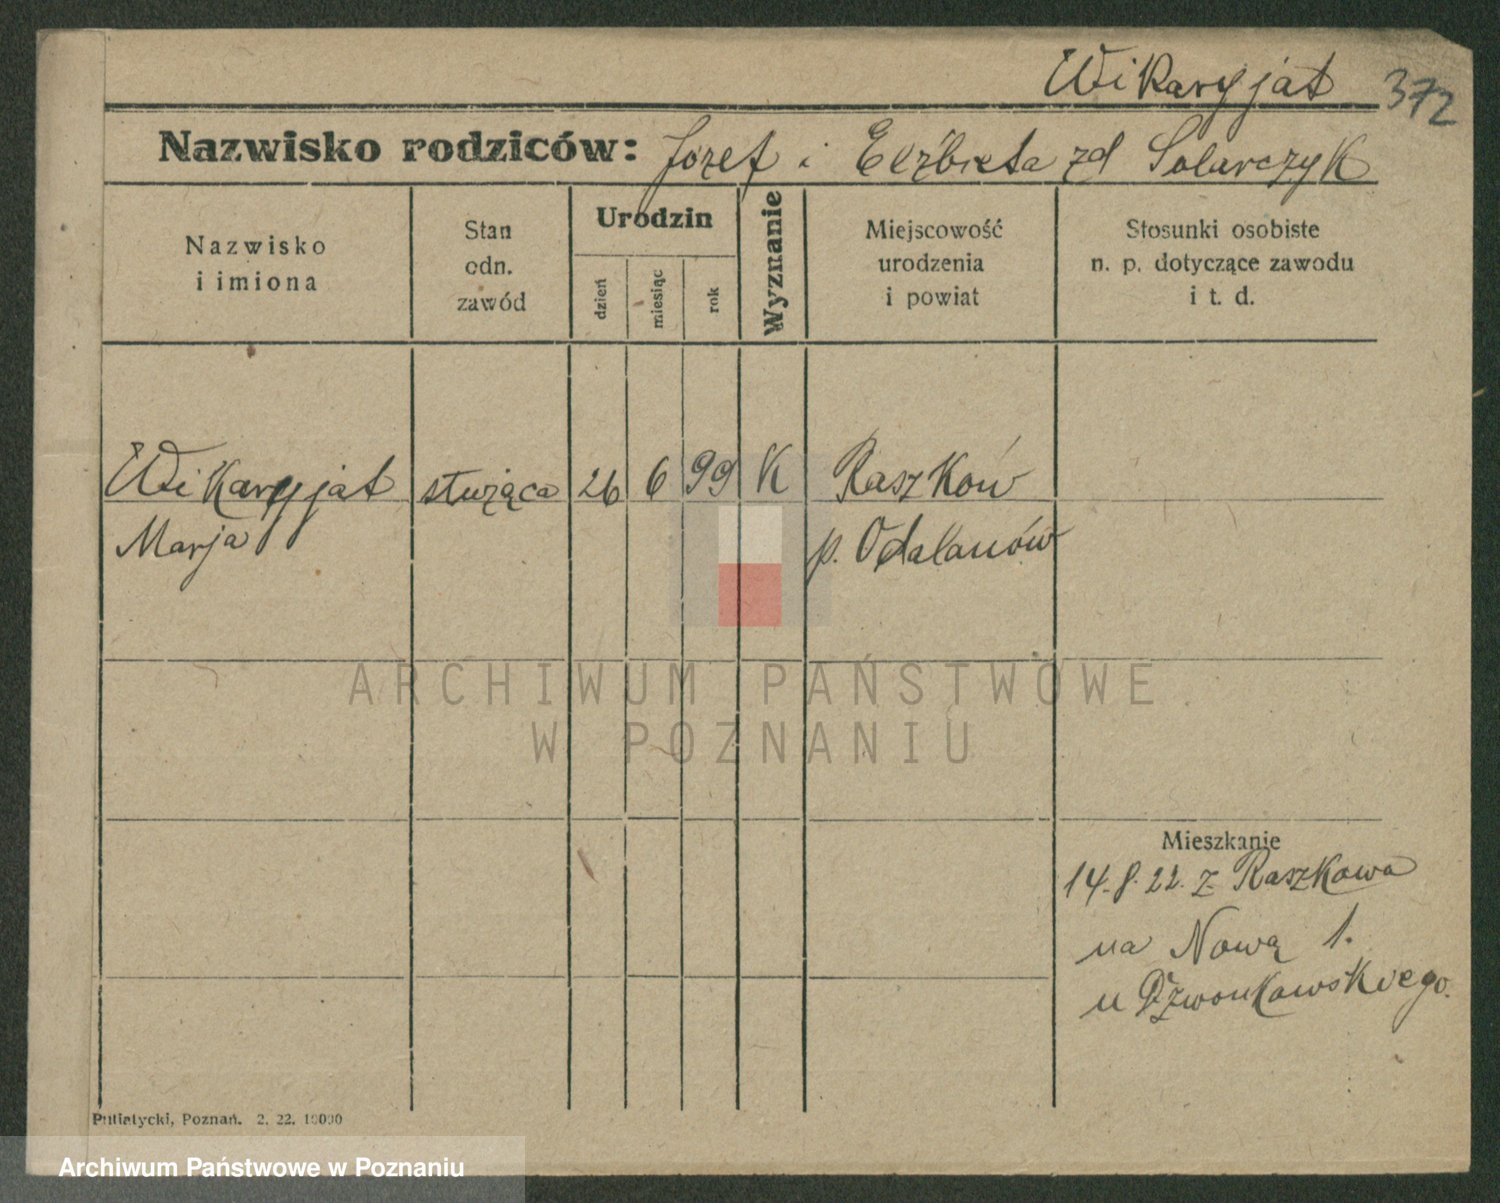 Wikaryjat 372
Nazwisko rodziców: Józef i Elżbieta zd Solarczyk
Nazwisko
i imiona
Stan
odn.
zawód
Urodzin
dzień
miesiąc
rok
Wyznanie
Miejscowość
urodzenia
i powiat
Stosunki osobiste
n. p. dotyczące zawodu
i t. d.
Wikaryjat służąca 26 6 99 K Raszków
Marja p. Odalanów
ARCHIWUM PAŃSTWOWE
W POZNANIU
Mieszkanie
14.8.22. z Raszkowa
na Nową 1.
u Dzwonkowskiego.
Putiatycki, Poznań. 2. 22. 10000
Archiwum Państwowe w Poznaniu